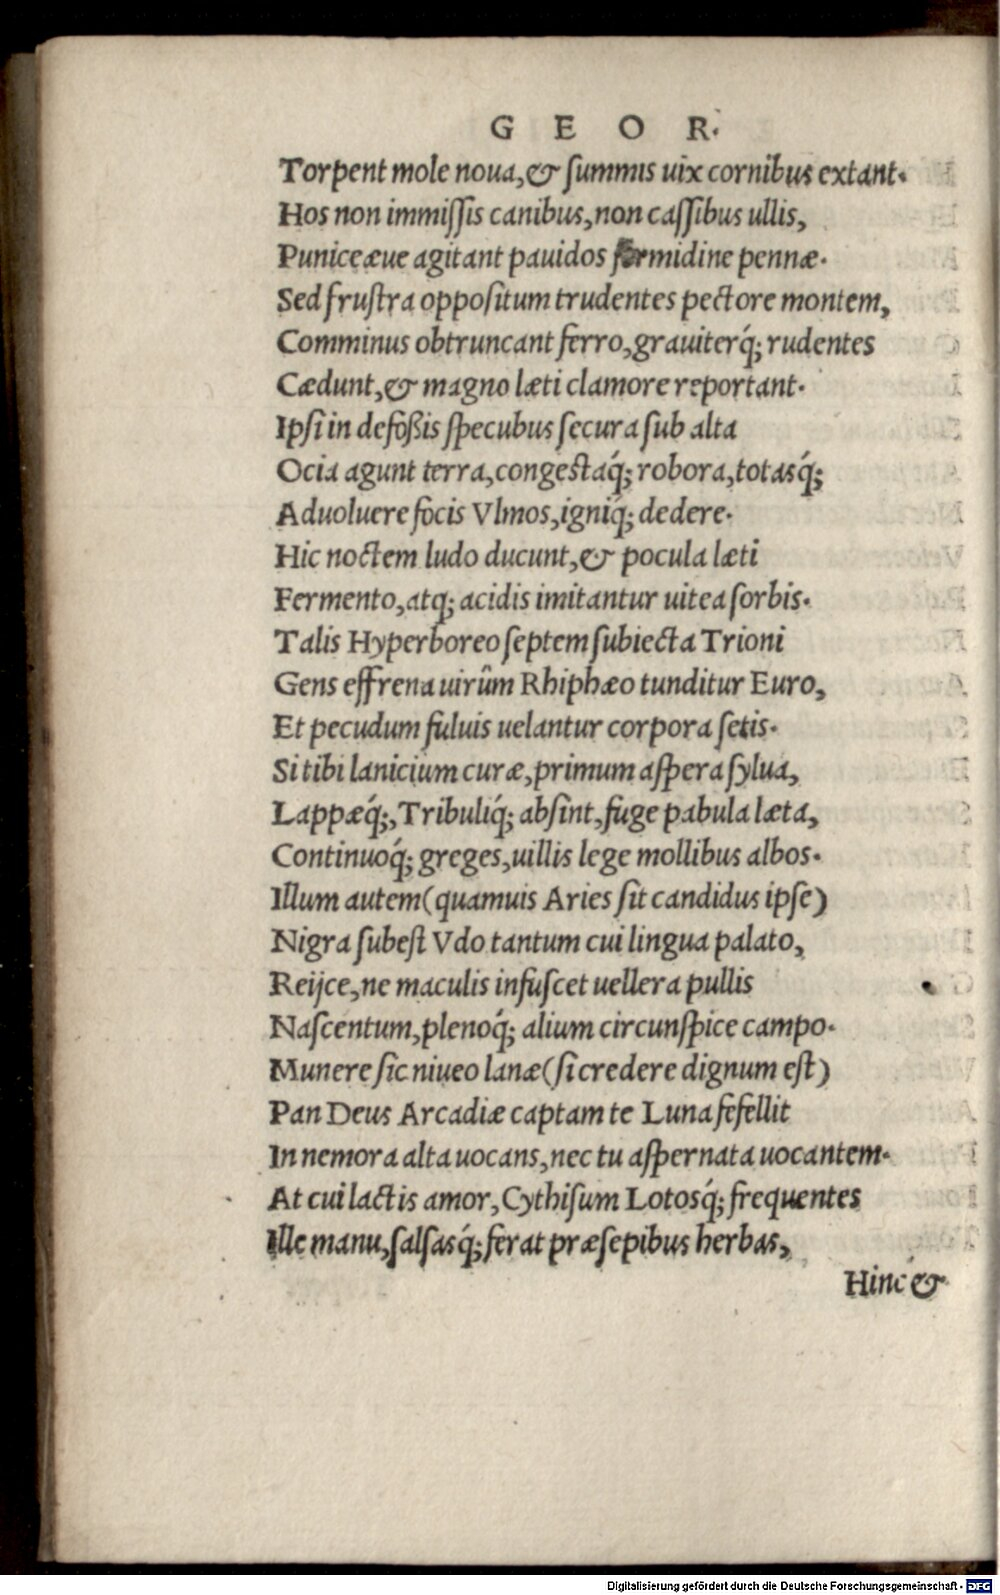 GEOR.
Torpent mole noua,& summis uix cornibus extant.
Hos non immissis canibus,non cassibus ullis,
Puniceæue agitant pauidos formidine pennæ.
Sed frustra oppositum trudentes pectore montem,
Comminus obtruncant ferro,grauiterq́; rudentes
Cædunt,& magno læti clamore reportant.
Ipsi in defoßis specubus secura sub alta
Ocia agunt terra,congestaq́; robora,totasq́;
Aduoluere focis Vlmos,igniq́; dedere.
Hic noctem ludo ducunt,& pocula læti
Fermento,atq; acidis imitantur uitea sorbis.
Talis Hyperboreo septem subiecta Trioni
Gens effrena uirûm Rhiphæo tunditur Euro,
Et pecudum fuluis uelantur corpora setis.
Si tibi lanicium curæ,primum aspera sylua,
Lappæq́;,Tribuliq́; absint,fuge pabula læta,
Continuoq́; greges,uillis lege mollibus albos.
Illum autem(quamuis Aries sit candidus ipse)
Nigra subest Vdo tantum cui lingua palato,
Reijce,ne maculis infuscet uellera pullis
Nascentum,plenoq́; alium circunspice campo.
Munere sic niueo lanæ(si credere dignum est)
Pan Deus Arcadiæ captam te Luna fefellit
In nemora alta uocans,nec tu aspernata uocantem.
At cui lactis amor,Cythisum Lotosq́; frequentes
Ille manu,salsasq́; ferat præsepibus herbas,
Hinc &
Digitalisierung gefördert durch die Deutsche Forschungsgemeinschaft - DFG